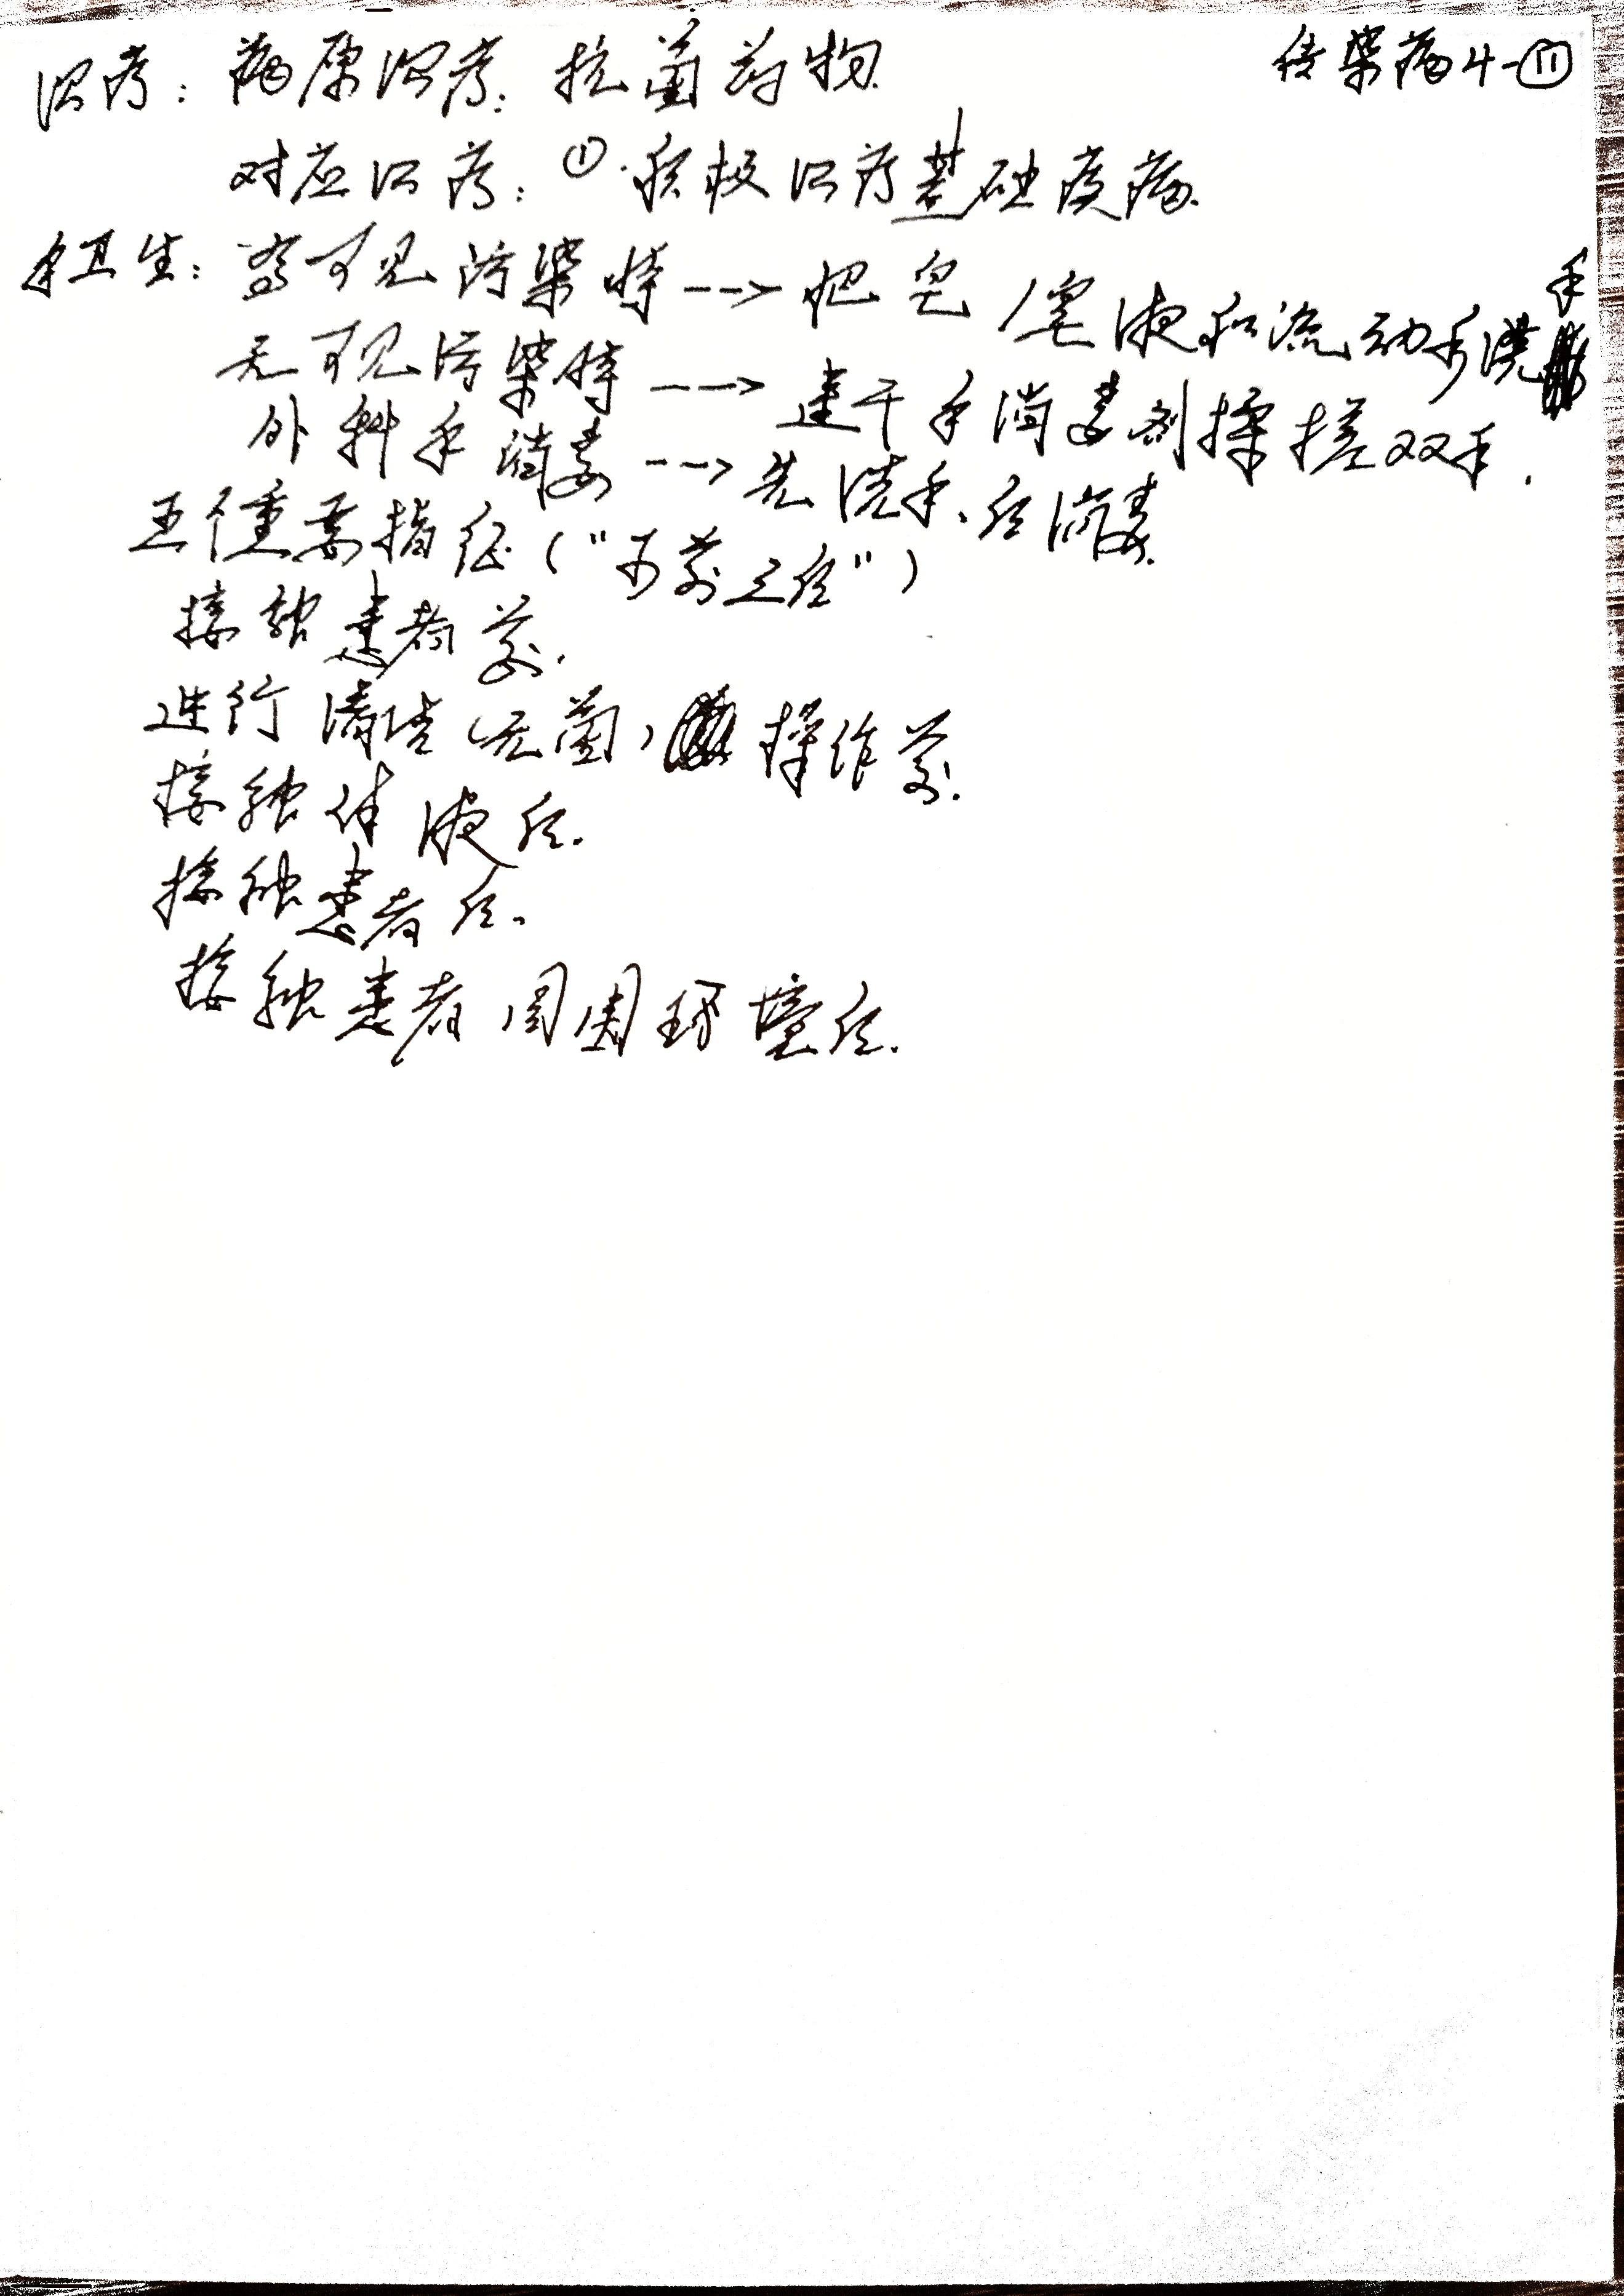 传染病4-⑪
治疗：病原治疗：抗菌药物.
对应治疗：①.积极治疗基础疾病.
手卫生：有可见污染时-->肥皂/皂液和流动水洗手
无可见污染时-->速干手消毒剂揉搓双手.
外科手消毒-->先洗手、后消毒.
五个重要指征("两前三后")
接触患者前.
进行清洁(无菌)操作前.
接触体液后.
接触患者后.
接触患者周围环境后.